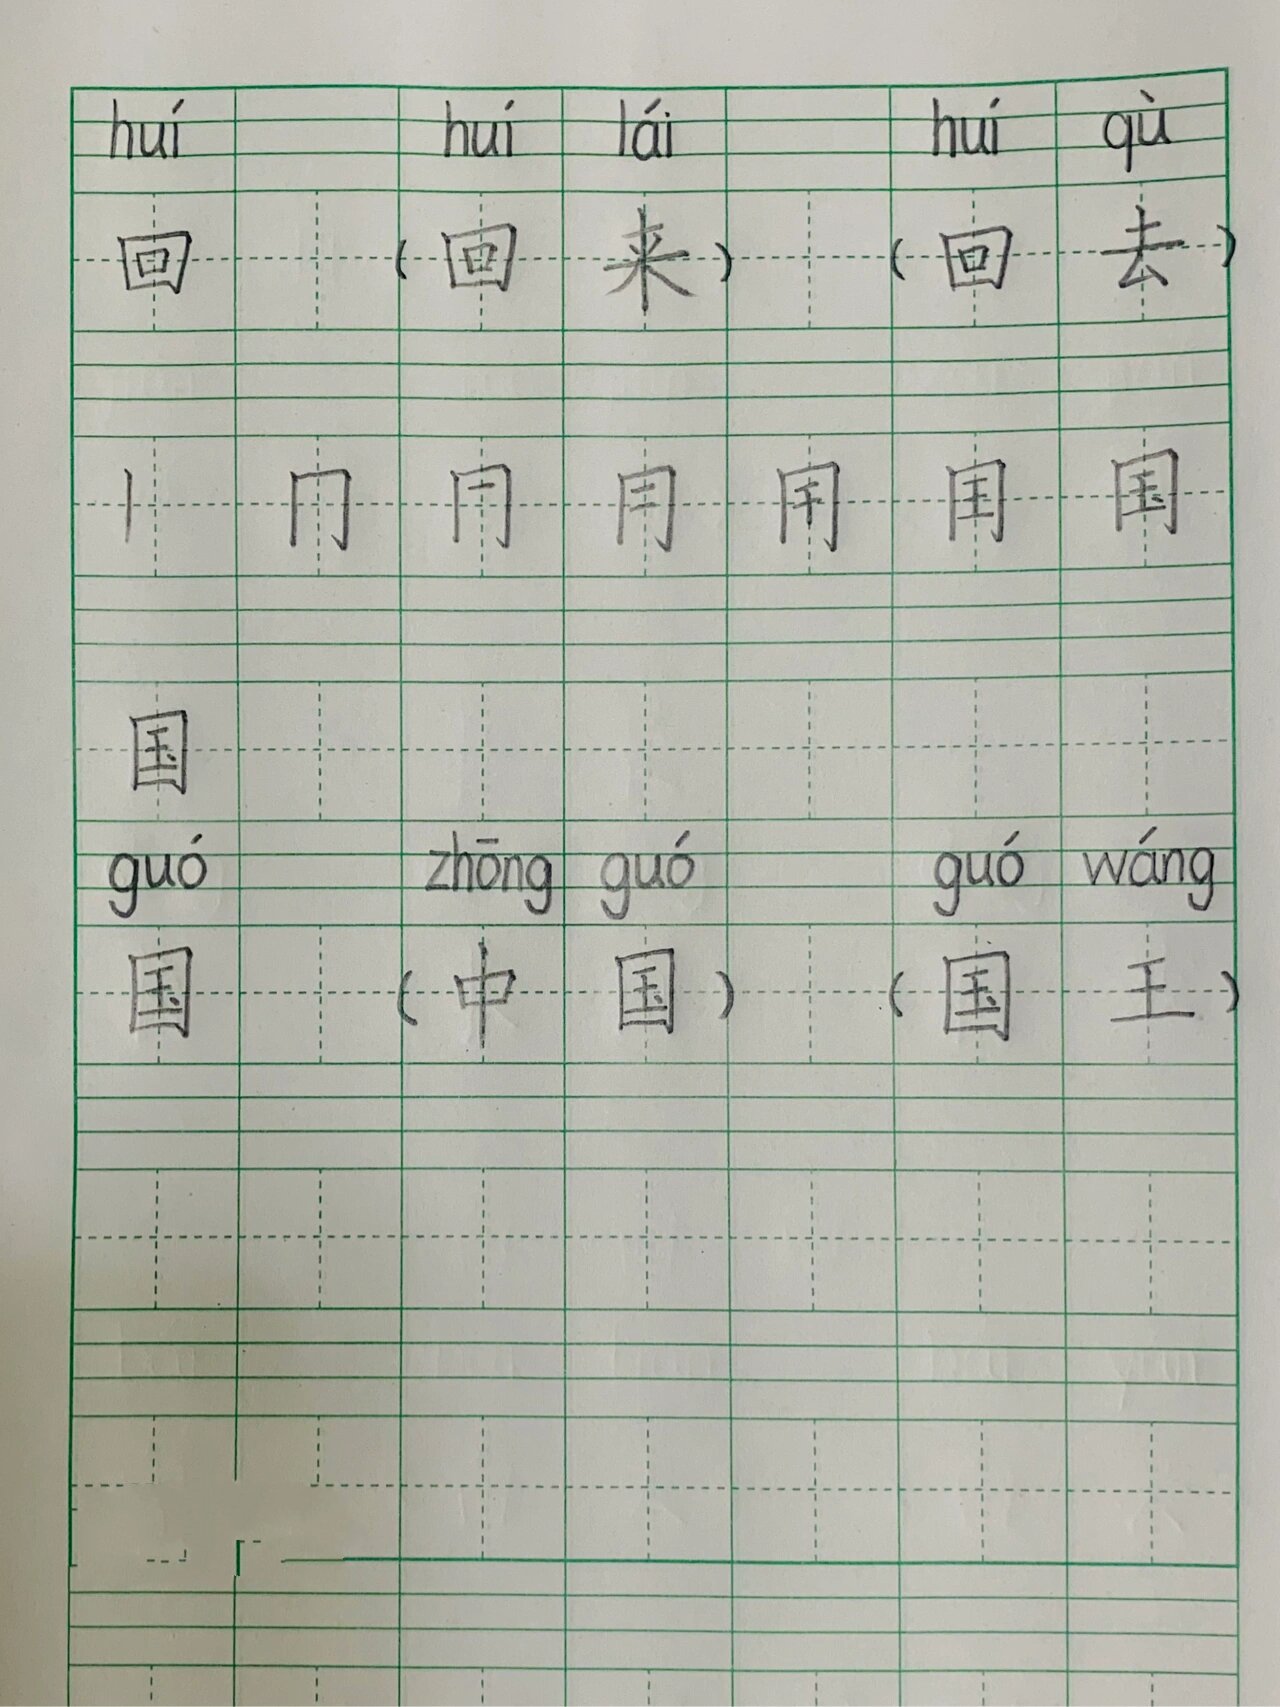 huí huí lái huí qù
回 （回来） （回去）
丨 冂 国
国
guó zhōng guó guó wáng
国 （中国） （国王）